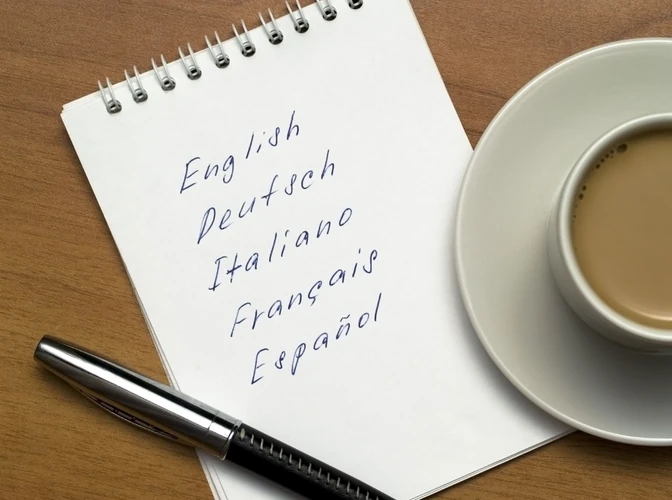 English
Deutsch
Italiano
Français
Español